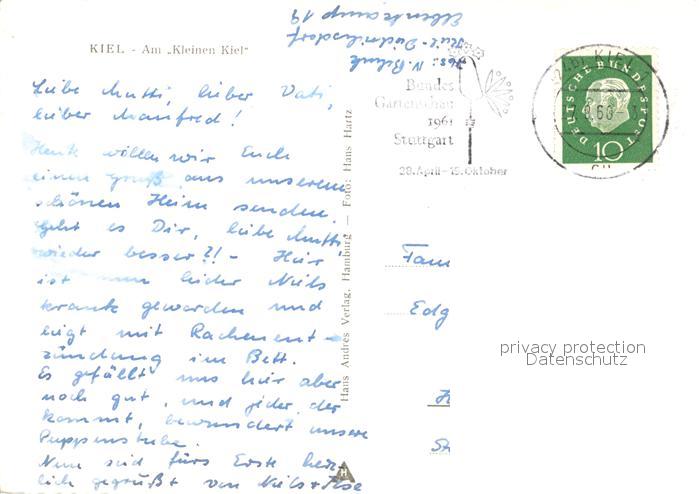 KIEL - Am „Kleinen Kiel"
Liebe Mutti, lieber Vati,
lieber Manfred!
Heute wollen wir Euch
einen Gruß aus unserem
schönen Heim senden.
Geht es Dir, liebe Mutti
wieder besser?! - Hier
ist nun leider Niels
krank geworden und
liegt mit Rachenent-
zündung im Bett.
Es gefällt uns hier aber
noch gut, und jeder, der
kommt, bewundert unsere
Puppenstube.
Nun seid fürs Erste herz-
lich gegrüßt von Niels +
Hans Andres Verlag, Hamburg — Foto: Hans Hartz
HA
Abs.: N.
Kiel-Dietrichsdorf
19
Bundes
Gartenschau
1961
Stuttgart
28. April - 15. Oktober
KIEL
60
DEUTSCHE BUNDESPOST
10
Fam
Edg
K
St
privacy protection
Datenschutz